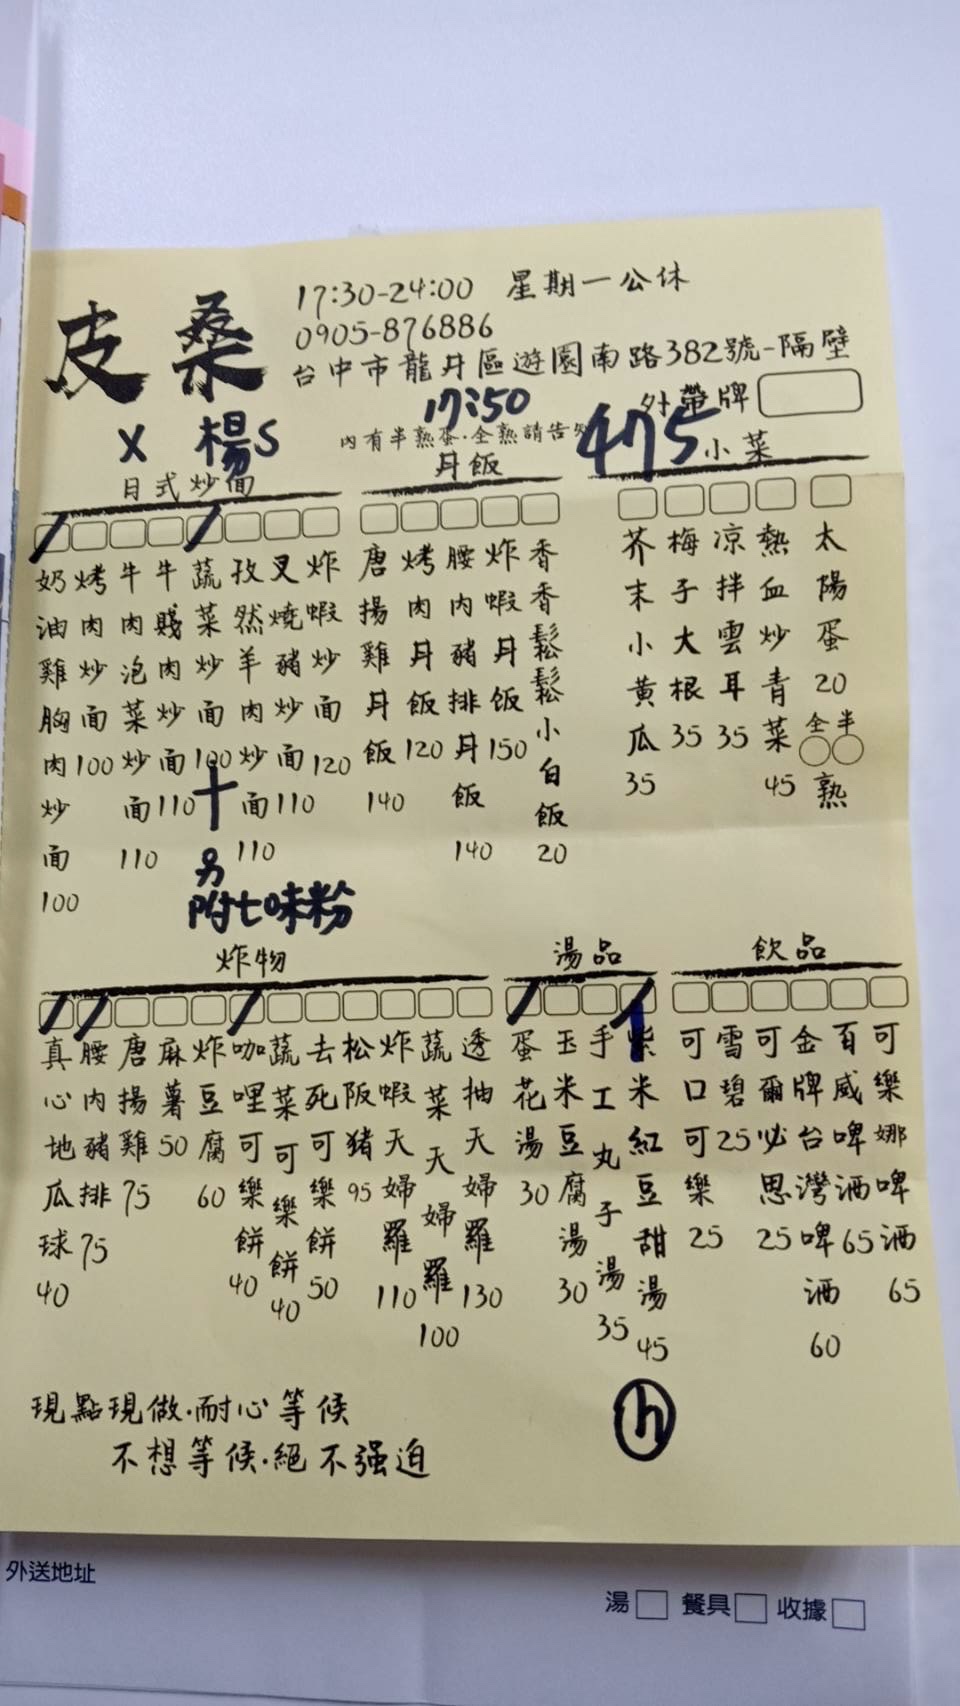 皮桑
17:30-24:00 星期一公休
0905-876886
台中市龍井區遊園南路382號-隔壁
外帶牌
X 楊S
17:50
475
內有半熟蛋·全熟請告知
日式炒面
奶油雞胸肉炒面100
烤肉炒面100
牛肉泡菜炒面110
牛賤肉炒面110
蔬菜炒面100
孜然羊肉炒面110
叉燒豬炒面110
炸蝦炒面120
十
另
附七味粉
丼飯
唐揚雞丼飯140
烤肉丼飯120
腰內豬排丼飯140
炸蝦丼飯150
香香鬆鬆小白飯20
小菜
芥末小黃瓜35
梅子大根35
涼拌雲耳35
熱血炒青菜45
太陽蛋20
全半
熟
炸物
真心地瓜球40
腰內豬排75
唐揚雞75
麻薯50
炸豆腐60
咖哩可樂餅40
蔬菜可樂餅40
去死可樂餅50
松阪豬95
炸蝦天婦羅110
蔬菜天婦羅100
透抽天婦羅130
湯品
蛋花湯30
玉米豆腐湯30
手工丸子湯35
紫米紅豆甜湯45
1
飲品
可口可樂25
雪碧25
可爾必思25
金牌台灣啤酒60
百威啤酒65
可樂娜啤酒65
現點現做·耐心等候
不想等候·絕不强迫
h
外送地址
湯 餐具 收據